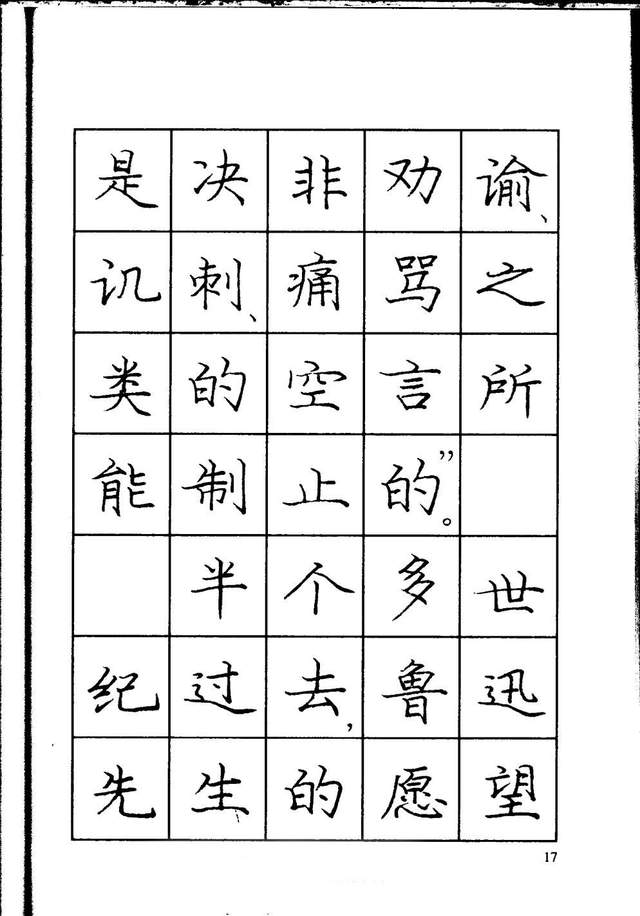 是决非劝谕、
讥刺、痛骂之
类的空言所
能制止的”。
半个多世
纪过去，鲁迅
先生的愿望
17